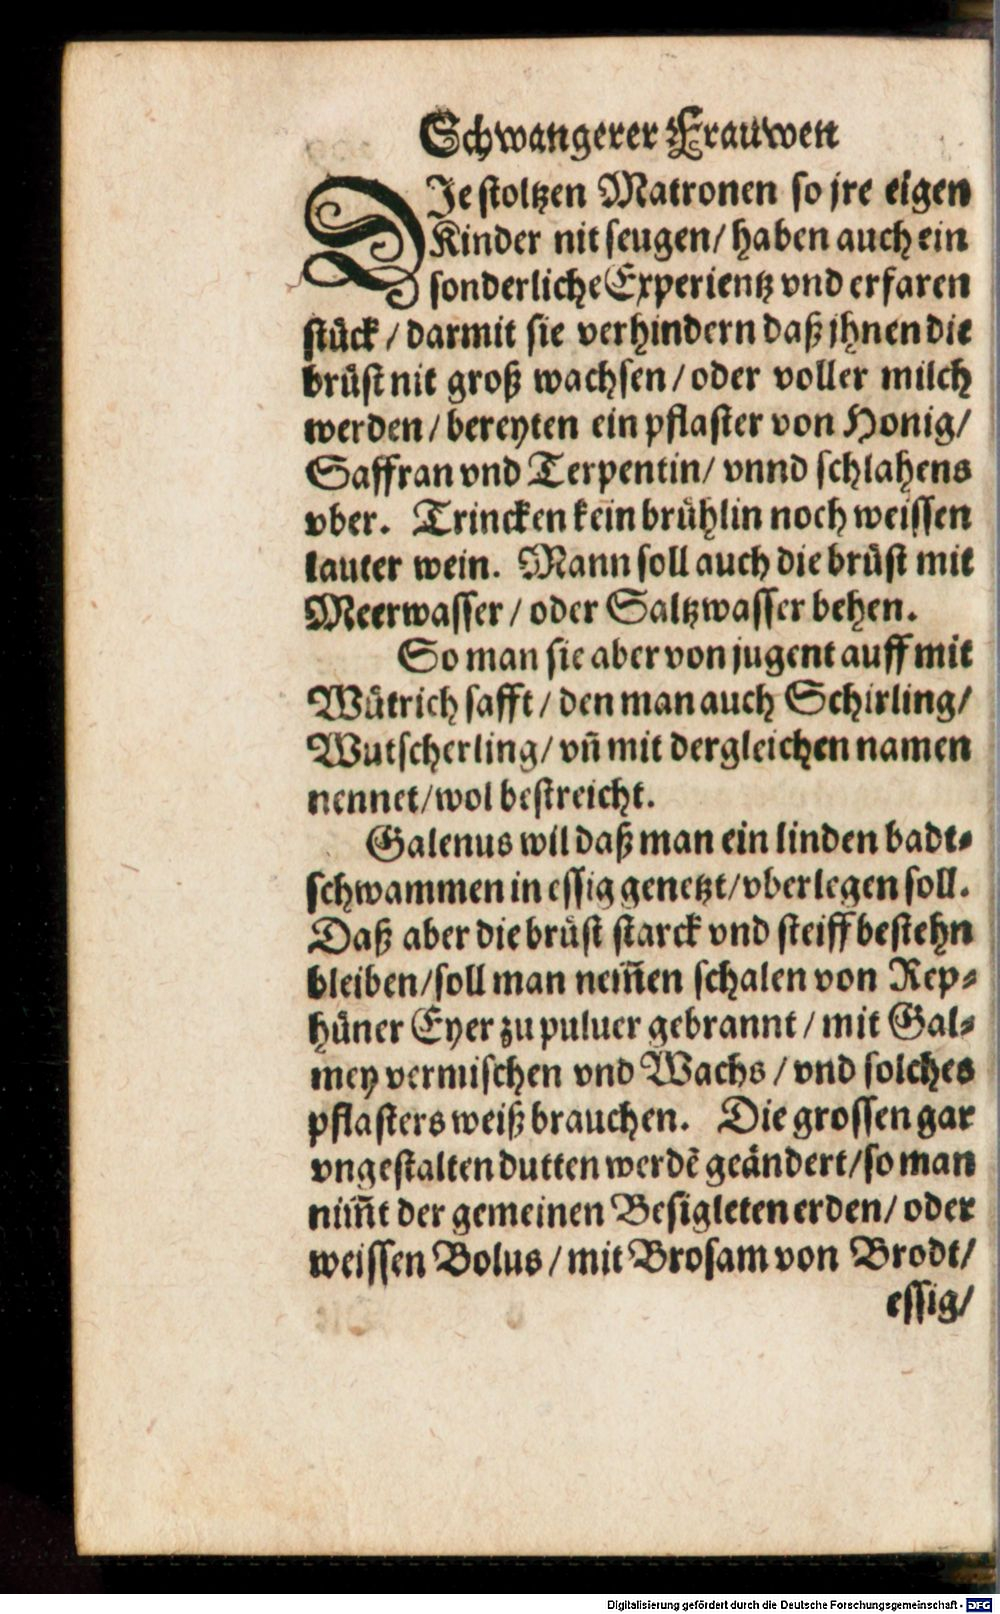 Schwangerer Frauwen
DIe stoltzen Matronen so jre eigen
Kinder nit seugen/ haben auch ein
sonderliche Experientz vnd erfaren
stück / darmit sie verhindern daß jhnen die
brüst nit groß wachsen / oder voller milch
werden / bereyten ein pflaster von Honig/
Saffran vnd Terpentin/ vnnd schlahens
vber. Trincken kein brühlin noch weissen
lauter wein. Mann soll auch die brüst mit
Meerwasser / oder Saltzwasser behen.
So man sie aber von jugent auff mit
Wütrich safft / den man auch Schirling/
Wutscherling/ vñ mit dergleichen namen
nennet/wol bestreicht.
Galenus wil daß man ein linden badt⸗
schwammen in essig genetzt/vberlegen soll.
Daß aber die brüst starck vnd steiff bestehn
bleiben/soll man nem̃en schalen von Rep⸗
hüner Eyer zu puluer gebrannt / mit Gal⸗
mey vermischen vnd Wachs / vnd solches
pflasters weiß brauchen. Die grossen gar
vngestalten dutten werdẽ geändert/so man
nim̃t der gemeinen Besigleten erden/ oder
weissen Bolus / mit Brosam von Brodt/
essig/
Digitalisierung gefördert durch die Deutsche Forschungsgemeinschaft - DFG